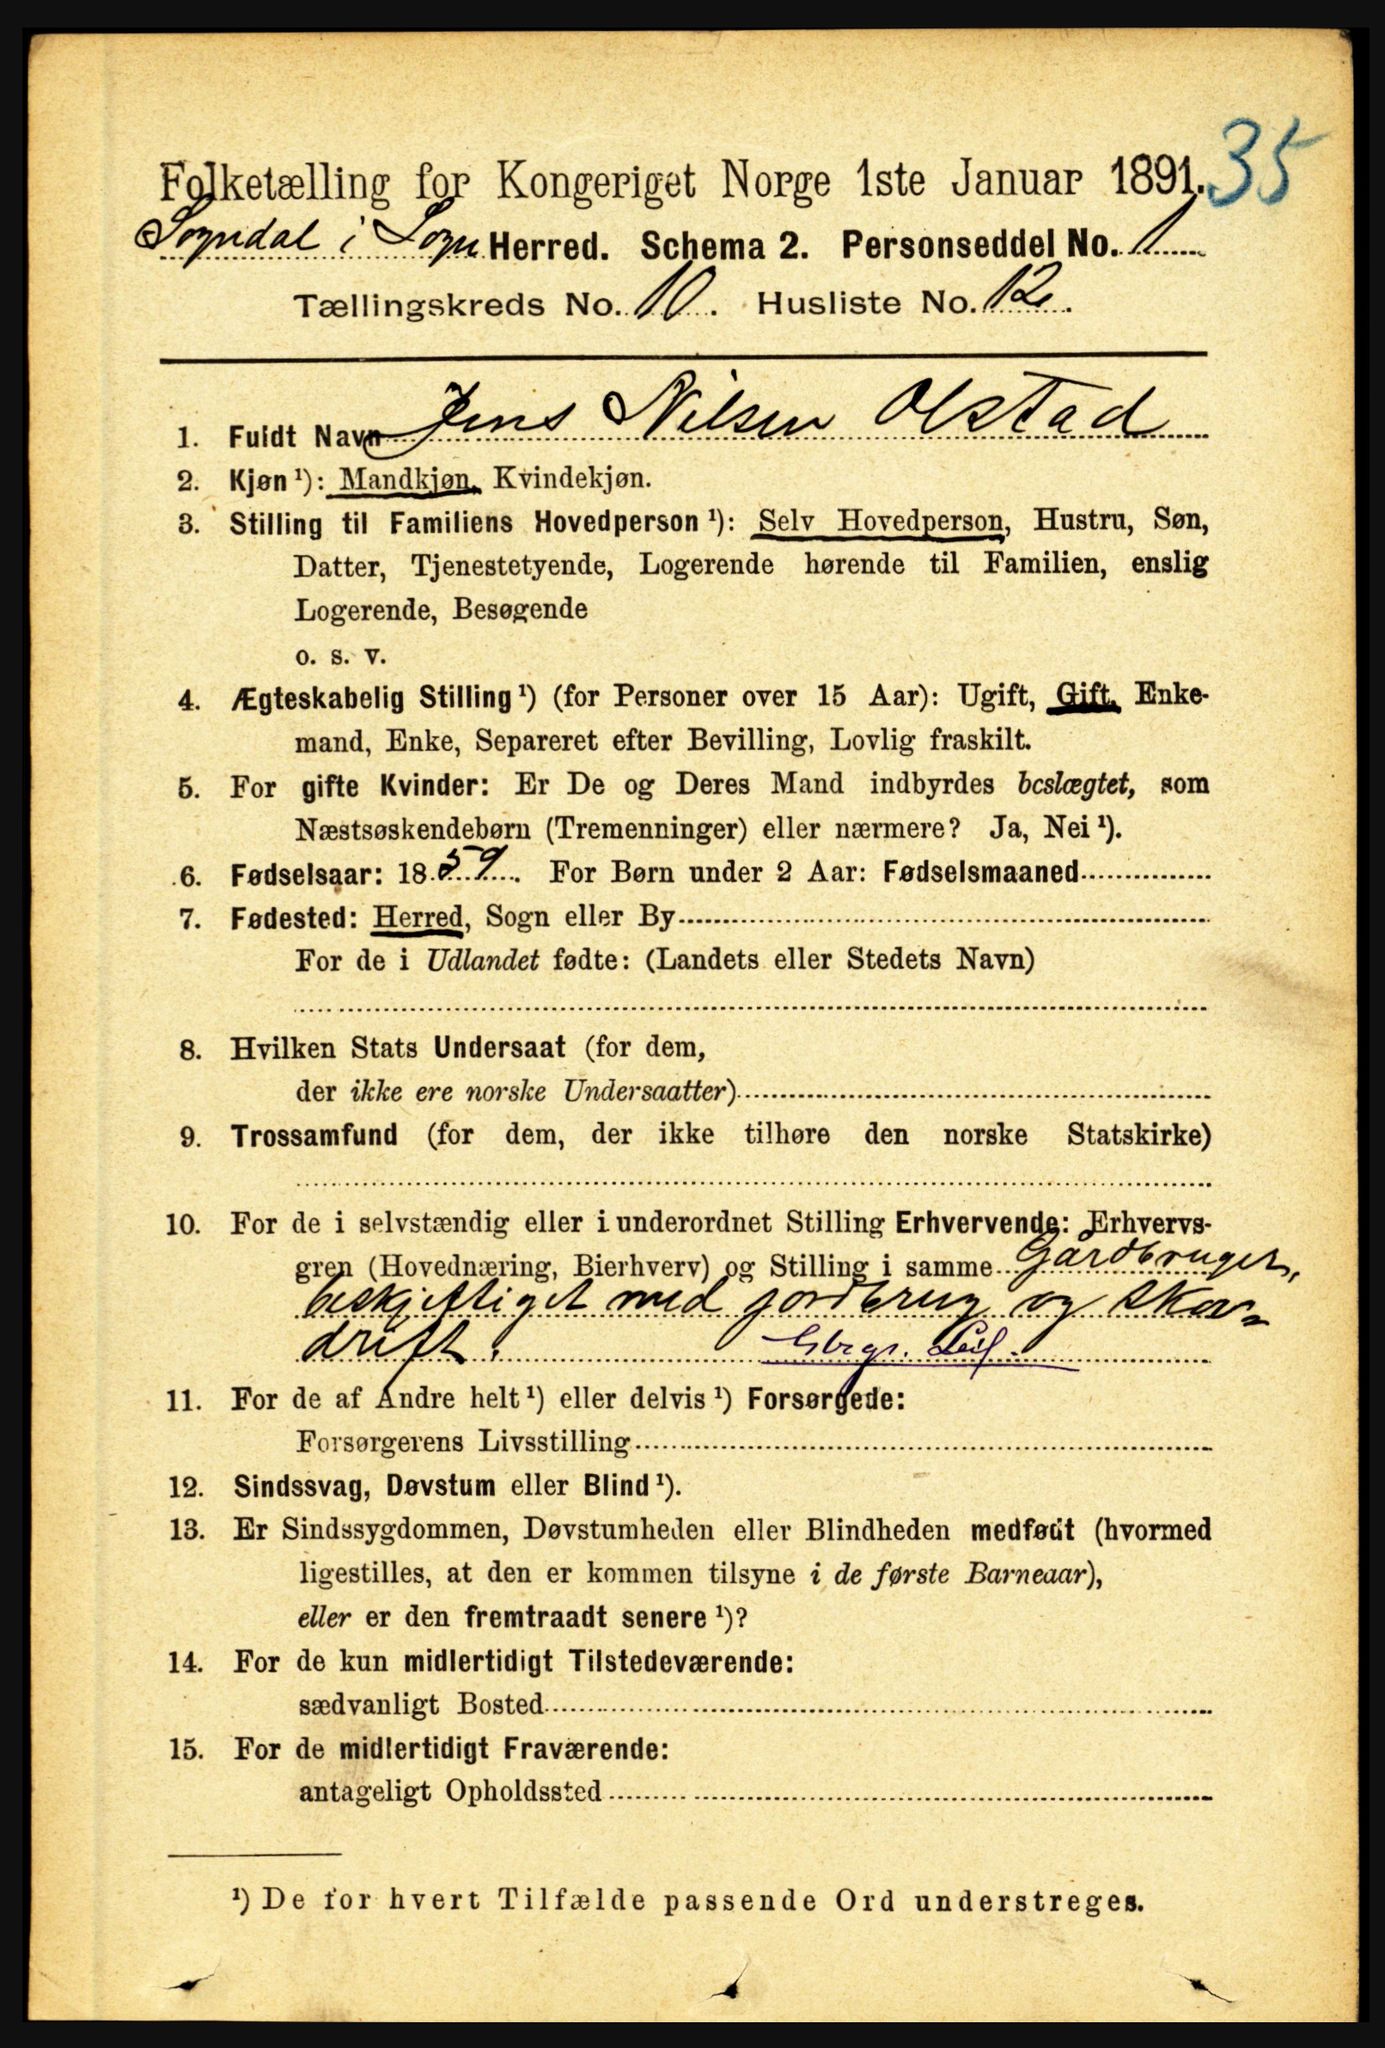 35
Folketælling for Kongeriget Norge 1ste Januar 1891.
Sogndal i Sogn Herred. Schema 2. Personseddel No. 1
Tællingskreds No. 10. Husliste No. 12.
1. Fuldt Navn Jens Nilsen Olstad
2. Kjøn ¹): Mandkjøn, Kvindekjøn.
3. Stilling til Familiens Hovedperson ¹): Selv Hovedperson, Hustru, Søn,
Datter, Tjenestetyende, Logerende hørende til Familien, enslig
Logerende, Besøgende
o. s. v.
4. Ægteskabelig Stilling ¹) (for Personer over 15 Aar): Ugift, Gift, Enke-
mand, Enke, Separeret efter Bevilling, Lovlig fraskilt.
5. For gifte Kvinder: Er De og Deres Mand indbyrdes beslægtet, som
Næstsøskendebørn (Tremenninger) eller nærmere? Ja, Nei ¹).
6. Fødselsaar: 1859. For Børn under 2 Aar: Fødselsmaaned
7. Fødested: Herred, Sogn eller By
For de i Udlandet fødte: (Landets eller Stedets Navn)
8. Hvilken Stats Undersaat (for dem,
der ikke ere norske Undersaatter)
9. Trossamfund (for dem, der ikke tilhøre den norske Statskirke)
10. For de i selvstændig eller i underordnet Stilling Erhvervende: Erhvervs-
gren (Hovednæring, Bierhverv) og Stilling i samme Gårdbruger,
beskjeftiget med jordbrug og skov-
drift. Gbrgr. Leil.
11. For de af Andre helt ¹) eller delvis ¹) Forsørgede:
Forsørgerens Livsstilling
12. Sindssvag, Døvstum eller Blind ¹).
13. Er Sindssygdommen, Døvstumheden eller Blindheden medfødt (hvormed
ligestilles, at den er kommen tilsyne i de første Barneaar),
eller er den fremtraadt senere ¹)?
14. For de kun midlertidigt Tilstedeværende:
sædvanligt Bosted
15. For de midlertidigt Fraværende:
antageligt Opholdssted
¹) De for hvert Tilfælde passende Ord understreges.